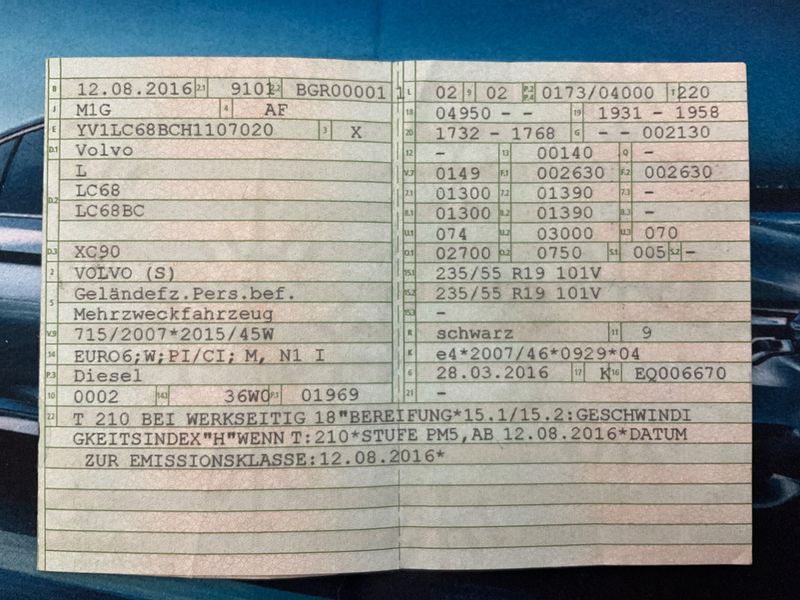 B 12.08.2016 2.1 9101 2.2 BGR00001 1
J M1G 4 AF
E YV1LC68BCH1107020 3 X
D.1 Volvo
L
D.2 LC68
LC68BC
D.3 XC90
2 VOLVO (S)
5 Geländefz.Pers.bef.
Mehrzweckfahrzeug
V.9 715/2007*2015/45W
14 EURO6;W;PI/CI; M, N1 I
P.3 Diesel
10 0002 14.1 36W0 P.1 01969
22 T 210 BEI WERKSEITIG 18"BEREIFUNG*15.1/15.2:GESCHWINDI
GKEITSINDEX"H"WENN T:210*STUFE PM5,AB 12.08.2016*DATUM
ZUR EMISSIONSKLASSE:12.08.2016*
L 02 9 02 P.2 P.4 0173/04000 T 220
18 04950 - - 19 1931 - 1958
20 1732 - 1768 G - - 002130
12 - 13 00140 Q -
V.7 0149 F.1 002630 F.2 002630
7.1 01300 7.2 01390 7.3 -
8.1 01300 8.2 01390 8.3 -
U.1 074 U.2 03000 U.3 070
O.1 02700 O.2 0750 S.1 005 S.2 -
15.1 235/55 R19 101V
15.2 235/55 R19 101V
15.3 -
R schwarz 11 9
K e4*2007/46*0929*04
6 28.03.2016 17 K 16 EQ006670
21 -